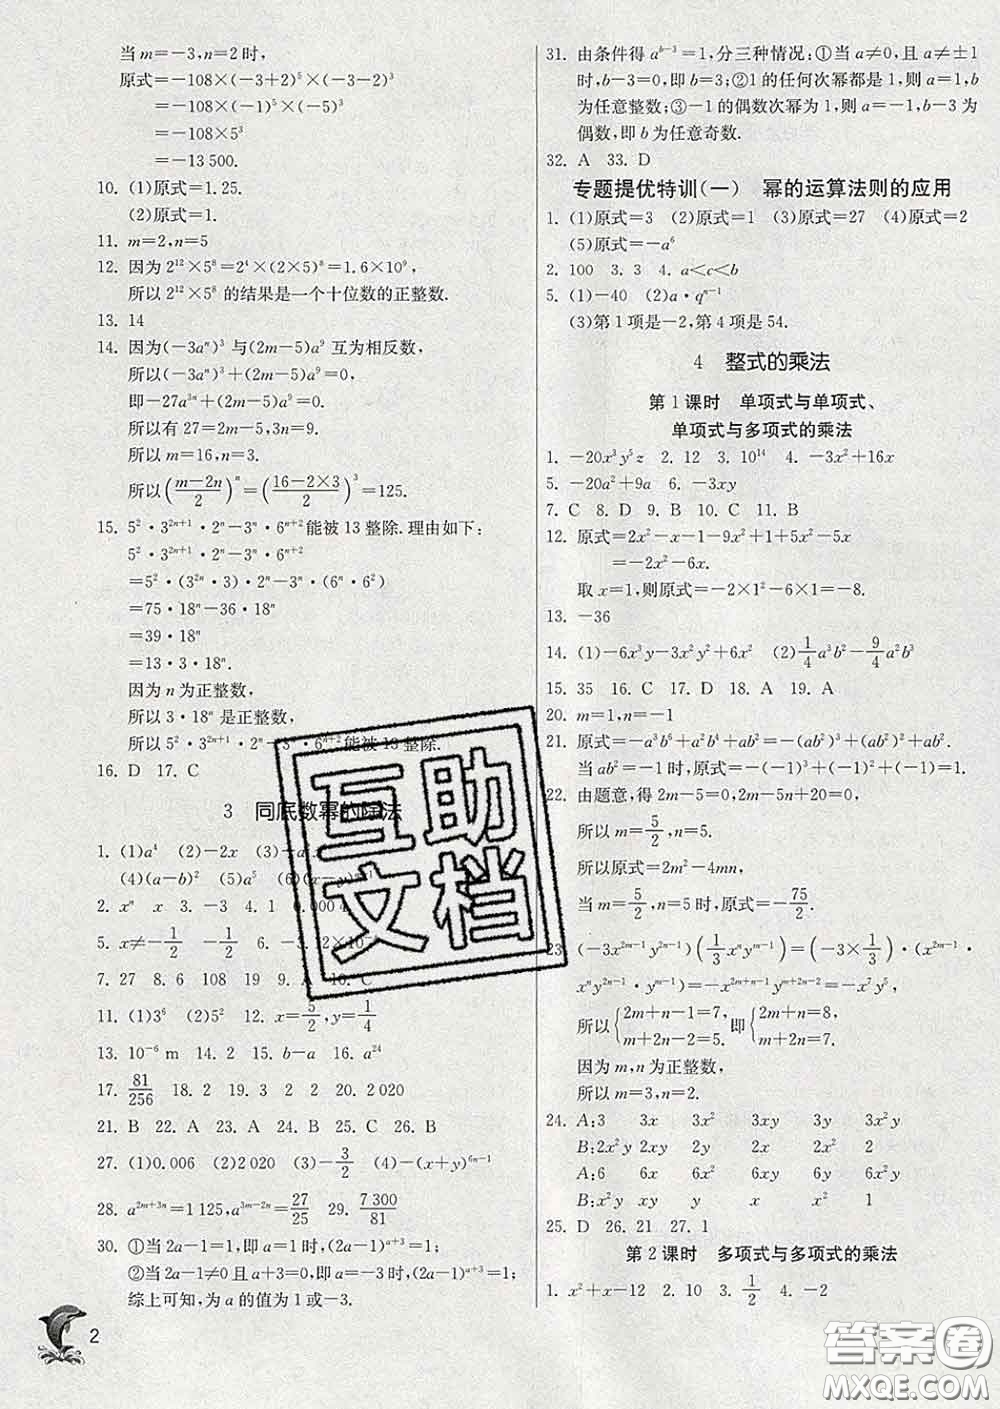 当m=-3,n=2时,
原式=-108×(-3+2)⁵×(-3-2)³
=-108×(-1)⁵×(-5)³
=-108×5³
=-13 500.
10. (1)原式=1.25.
(2)原式=1.
11. m=2,n=5
12. 因为2¹²×5⁸=2⁴×(2×5)⁸=1.6×10⁹,
所以2¹²×5⁸的结果是一个十位数的正整数.
13. 14
14. 因为(-3aⁿ)³与(2m-5)a⁹互为相反数,
所以(-3aⁿ)³+(2m-5)a⁹=0,
即-27a³ⁿ+(2m-5)a⁹=0.
所以有27=2m-5,3n=9.
所以m=16,n=3.
所以((m-2n)/2)ⁿ=((16-2×3)/2)³=125.
15. 5²·3²ⁿ⁺¹·2ⁿ-3ⁿ·6ⁿ⁺²能被13整除.理由如下:
5²·3²ⁿ⁺¹·2ⁿ-3ⁿ·6ⁿ⁺²
=5²·(3²ⁿ·3)·2ⁿ-3ⁿ·(6ⁿ·6²)
=75·18ⁿ-36·18ⁿ
=39·18ⁿ
=13·3·18ⁿ.
因为n为正整数,
所以3·18ⁿ是正整数,
所以5²·3²ⁿ⁺¹·2ⁿ-3ⁿ·6ⁿ⁺²能被13整除.
16. D 17. C
3 同底数幂的除法
1. (1)a⁴ (2)-2x (3)
(4)(a-b)² (5)a⁵
2. xⁿ x 3. -3 4. 1 0.000
5. x≠-1/2 -1/2 6.
7. 27 8. 6 108 19 9. A 10. C
11. (1)3⁶ (2)5² 12. x=5/2,y=1/4
13. 10⁻⁶ m 14. 2 15. b-a 16. a²⁴
17. 81/256 18. 2 19. 3 2 2 20. 2 020
21. B 22. A 23. D 24. A 25. C 26. B
27. (1)0.006 (2)2 020 (3)-3/2 (4)-(x+y)⁶ⁿ⁻¹
28. a²ᵐ⁺³ⁿ=1 125,a³ᵐ⁻²ⁿ=27/25 29. 7 300/81
30. ①当2a-1=1,即a=1时,(2a-1)ᵃ⁺³=1;
②当2a-1≠0且a+3=0,即a=-3时,(2a-1)ᵃ⁺³=1;
综上可知,为a的值为1或-3.
2
31. 由条件得aᵇ⁻³=1,分三种情况:①当a≠0,且a≠±1
时,b-3=0,即b=3;②1的任何次幂都是1,则a=1,b
为任意整数;③-1的偶数次幂为1,则a=-1,b-3为
偶数,即b为任意奇数.
32. A 33. D
专题提优特训(一) 幂的运算法则的应用
1. (1)原式=3 (2)原式=1 (3)原式=27 (4)原式=2
(5)原式=-a⁶
2. 100 3. 3 4. a<c<b
5. (1)-40 (2)a·qⁿ⁻¹
(3)第1项是-2,第4项是54.
4 整式的乘法
第1课时 单项式与单项式、
单项式与多项式的乘法
1. -20x³y⁵z 2. 12 3. 10¹⁴ 4. -3x²+16x
5. -20a²+9a 6. -3xy
7. C 8. D 9. B 10. C 11. B
12. 原式=2x²-x-1-9x²+1+5x²-5x
=-2x²-6x.
取x=1,则原式=-2×1²-6×1=-8.
13. -36
14. (1)-6x³y-3x²y²+6x² (2)1/4a³b²-9/4a²b³
15. 35 16. C 17. D 18. A 19. A
20. m=1,n=-1
21. 原式=-a³b⁶+a²b⁴+ab²=-(ab²)³+(ab²)²+ab².
当ab²=-1时,原式=-(-1)³+(-1)²+(-1)=1.
22. 由题意,得2m-5=0,2n-10=0.
所以m=5/2,n=5.
所以原式=2m²-4mn,
当m=5/2,n=5时,原式=-75/2.
23. (-3x²ᵐ⁻¹y²ⁿ⁻¹)(1/3xⁿyᵐ⁻¹)=(-3×1/3)·(x²ᵐ⁻¹·
xⁿy²ⁿ⁻¹·yᵐ⁻¹)=-x²ᵐ⁺ⁿ⁻¹yᵐ⁺²ⁿ⁻²=-x⁷y⁵,
所以{2m+n-1=7, m+2n-2=5.即{2m+n=8, m+2n=7.
因为m,n为正整数,
所以m=3,n=2.
24. A:3 3x 3x² 3xy 3x²y
B:2x²y 2xy 2y 2x 2
A:6 6x 6x² 6xy 6x²y
B:x²y xy y x x² 1
25. D 26. 21 27. 1
第2课时 多项式与多项式的乘法
1. x²+x-12 2. 10 3. 1/2 4. -2
互助
文档
答案圈
MXQE.COM